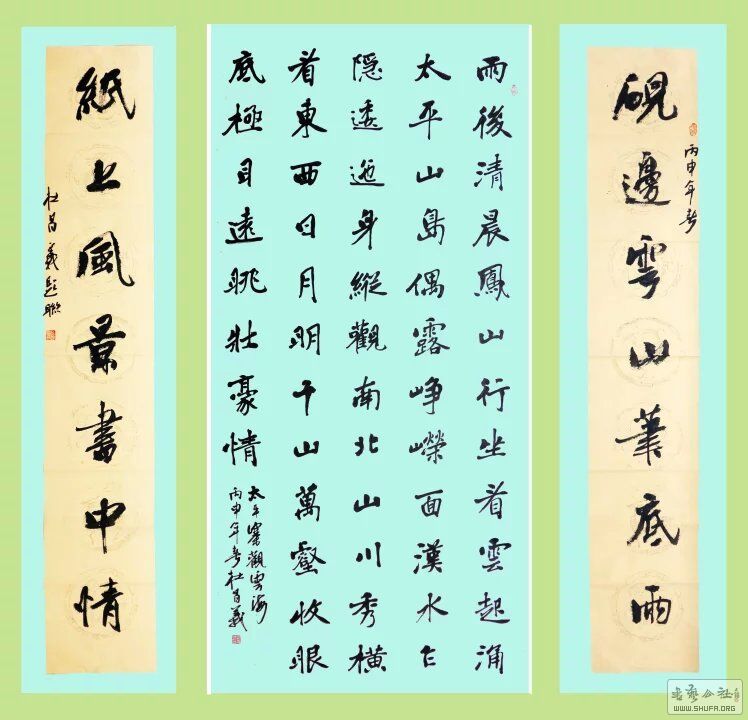 硯邊雲山筆底雨
丙申年春
雨後清晨鳳山行坐看雲起涌
太平山島偶露崢嶸面漢水乍
隐逶迤身縱觀南北山川秀橫
看東西日月明千山萬壑收眼
底極目遠眺壯豪情
太平寨觀雲海
丙申年春杜昌義
紙上風景書中情
杜昌義題聯
WWW.SHUFA.ORG